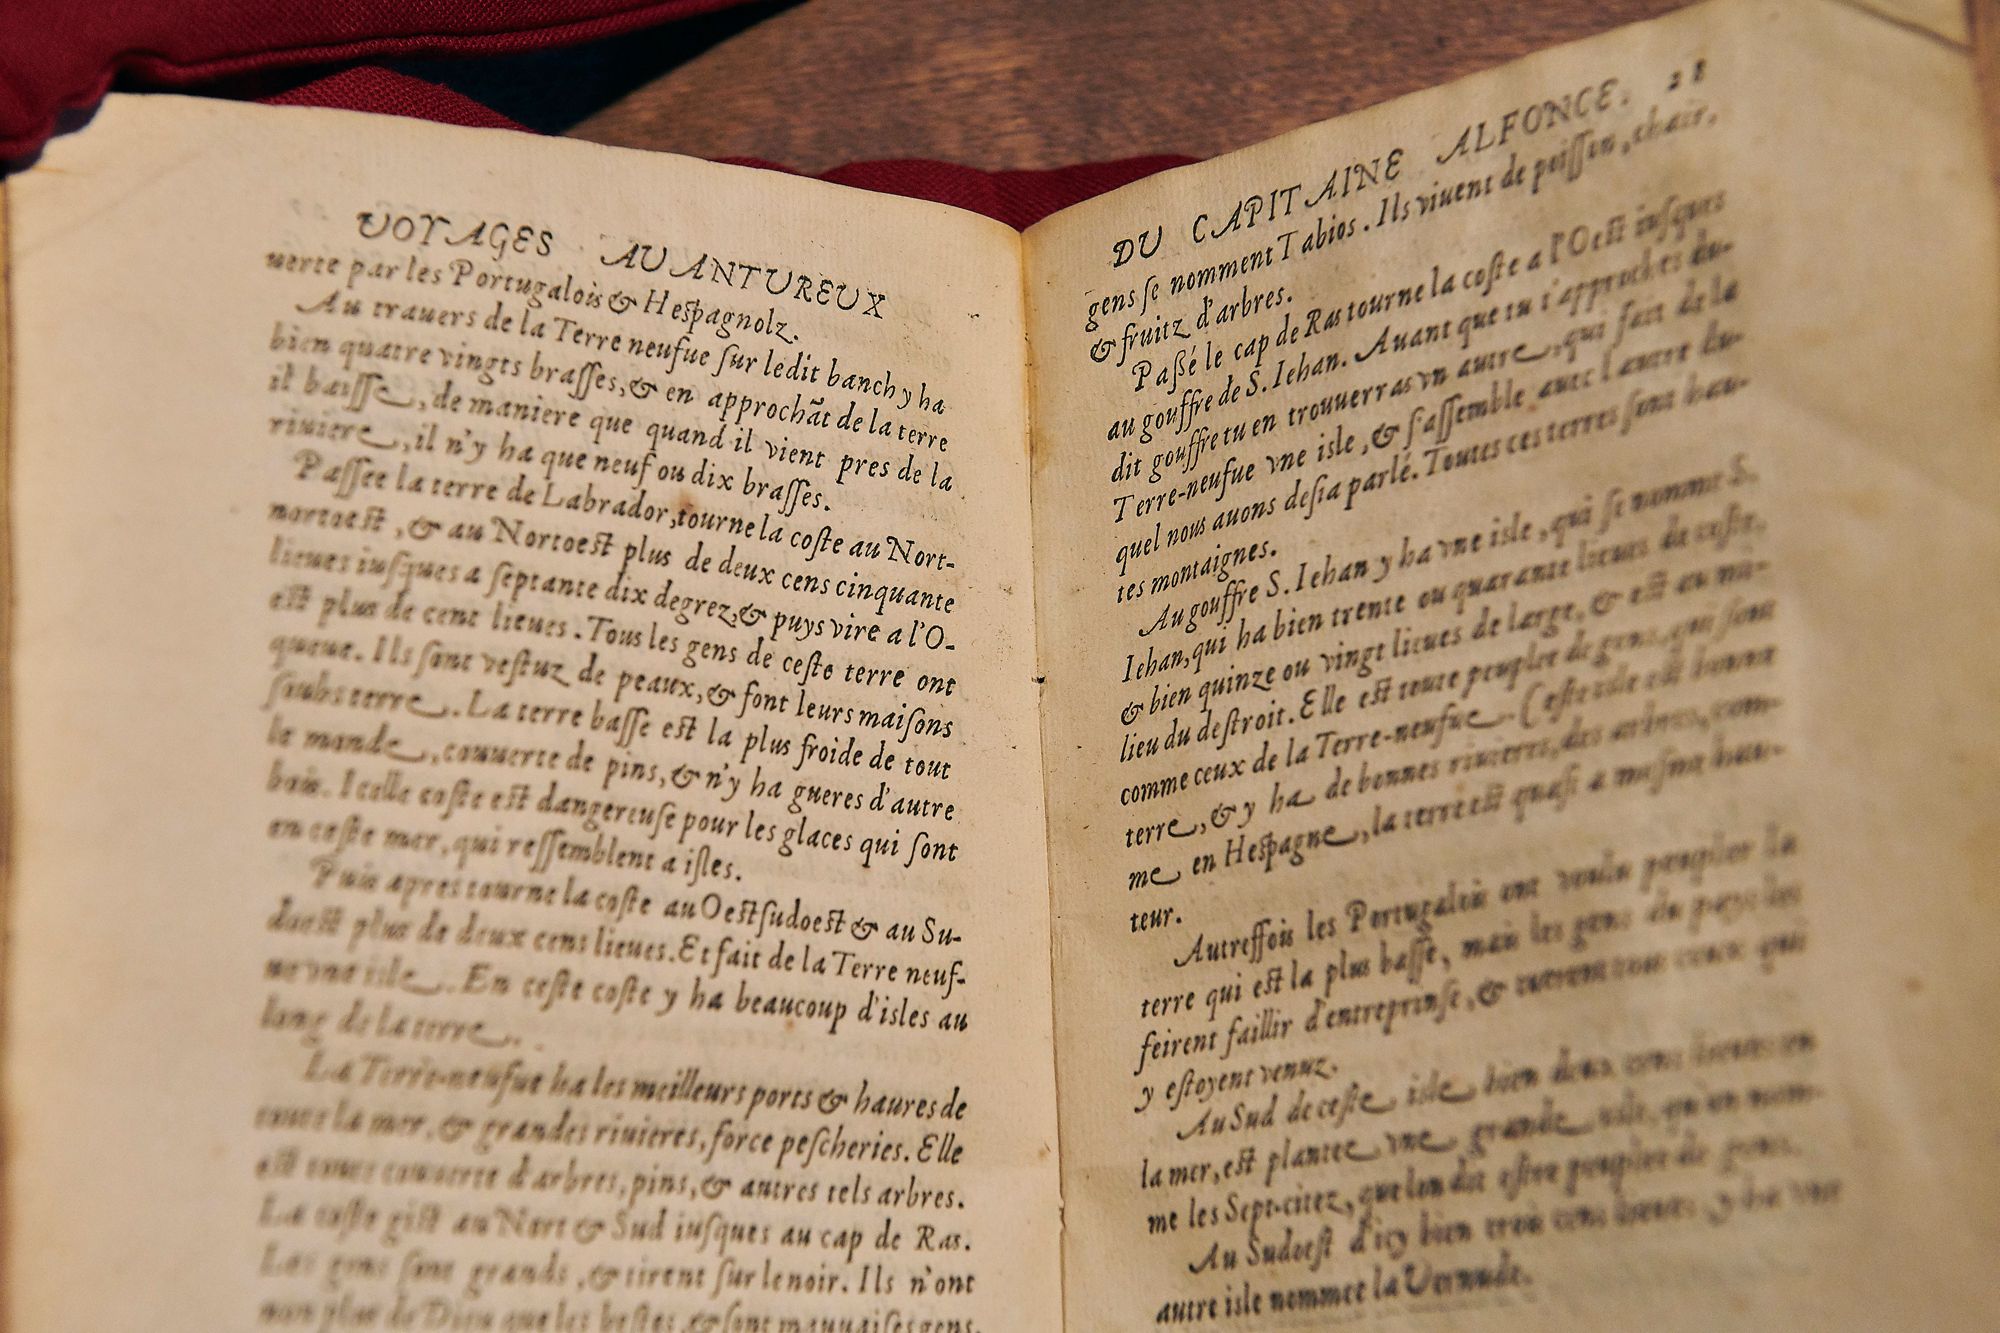 VOYAGES AVANTUREUX
uerte par les Portugalois & Hespagnolz.
Au trauers de la Terre neufue ſur ledit banch y ha
bien quatre vingts braſſes, & en approchãt de la terre
il baiſſe, de maniere que quand il vient pres de la
riuiere, il n'y ha que neuf ou dix braſſes.
Paſſee la terre de Labrador, tourne la coſte au Nort-
nortoeſt, & au Nortoeſt plus de deux cens cinquante
lieues iuſques a ſeptante dix degrez, & puys vire a l'O-
eſt plus de cent lieues. Tous les gens de ceſte terre ont
queue. Ils ſont veſtuz de peaux, & font leurs maiſons
ſoubs terre. La terre baſſe eſt la plus froide de tout
le monde, couuerte de pins, & n'y ha gueres d'autre
bois. Icelle coſte eſt dangereuſe pour les glaces qui ſont
en ceſte mer, qui reſſemblent a iſles.
Puis apres tourne la coſte au Oeſtſudoeſt & au Su-
doeſt plus de deux cens lieues. Et fait de la Terre neuf-
ue vne iſle. En ceſte coſte y ha beaucoup d'isles au
long de la terre.
La Terre-neufue ha les meilleurs ports & haures de
toute la mer, & grandes riuieres, force peſcheries. Elle
eſt toute couuerte d'arbres, pins, & autres tels arbres.
La coſte giſt au Nort & Sud iuſques au cap de Ras.
Les gens ſont grands, & tirent ſur le noir. Ils n'ont
non plus de Dieu que les beſtes, & ſont mauuaiſes gens.
DU CAPITAINE ALFONCE. 28
gens ſe nomment Tabios. Ils viuent de poiſſon, chair,
& fruitz d'arbres.
Paſsé le cap de Ras tourne la coſte a l'Oeſt iuſques
au gouffre de S. Iehan. Auant que tu t'approches du-
dit gouffre tu en trouuerras vn autre, qui fait de la
Terre-neufue vne isle, & ſ'aſſemble auec l'autre du-
quel nous auons deſia parlé. Toutes ces terres ſont hau-
tes montaignes.
Au gouffre S. Iehan y ha vne isle, qui ſe nomme S.
Iehan, qui ha bien trente ou quarante lieues de coſte,
& bien quinze ou vingt lieues de large, & eſt au mi-
lieu du deſtroit. Elle eſt toute peuplee de gens, qui ſont
comme ceux de la Terre-neufue. Ceſte isle eſt bonne
terre, & y ha de bonnes riuieres, des arbres, com-
me en Heſpagne, la terre eſt quaſi a meſme hau-
teur.
Autreffois les Portugalois ont voulu peupler la
terre qui eſt la plus baſſe, mais les gens du pays les
feirent faillir d'entreprinſe, & tuerent tous ceux qui
y eſtoyent venuz.
Au Sud de ceſte isle bien deux cens lieues en
la mer, eſt plantee vne grande isle, qu'on nom-
me les Sept-citez, que lon dit eſtre peuplee de gens.
Au Sudoeſt d'icy bien trois cens lieues, y ha vne
autre isle nommee la Vermude.